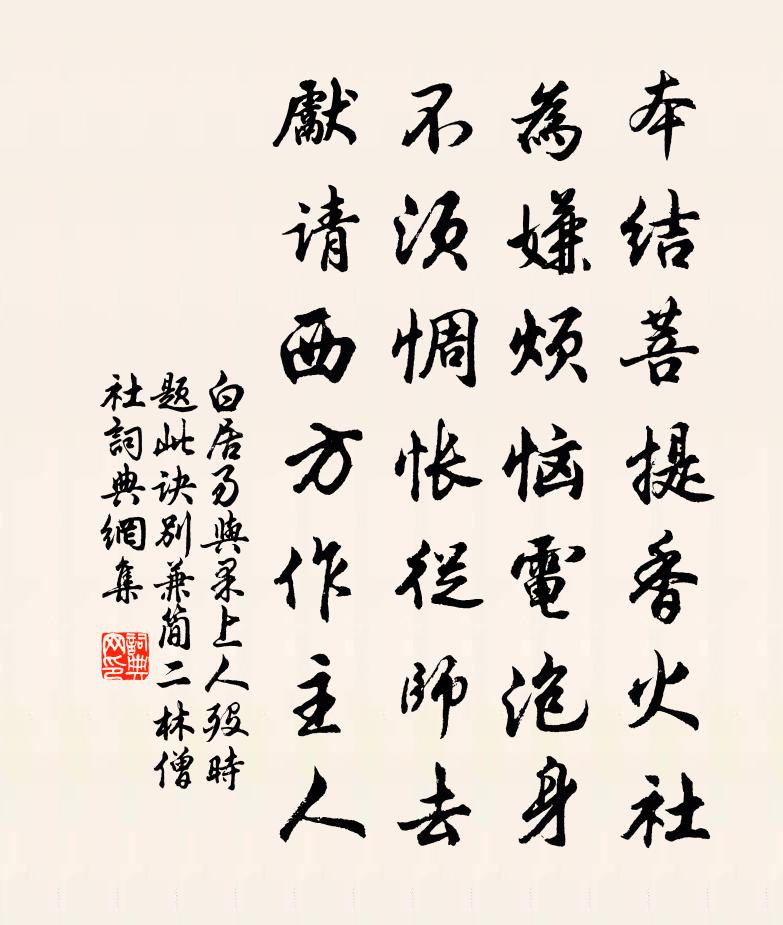 本结菩提香火社
為嫌烦恼電泡身
不须惆怅從師去
獻请西方作主人
白居易與果上人殁時
题此诀别兼简二林僧
社詞典網集
詞典网印